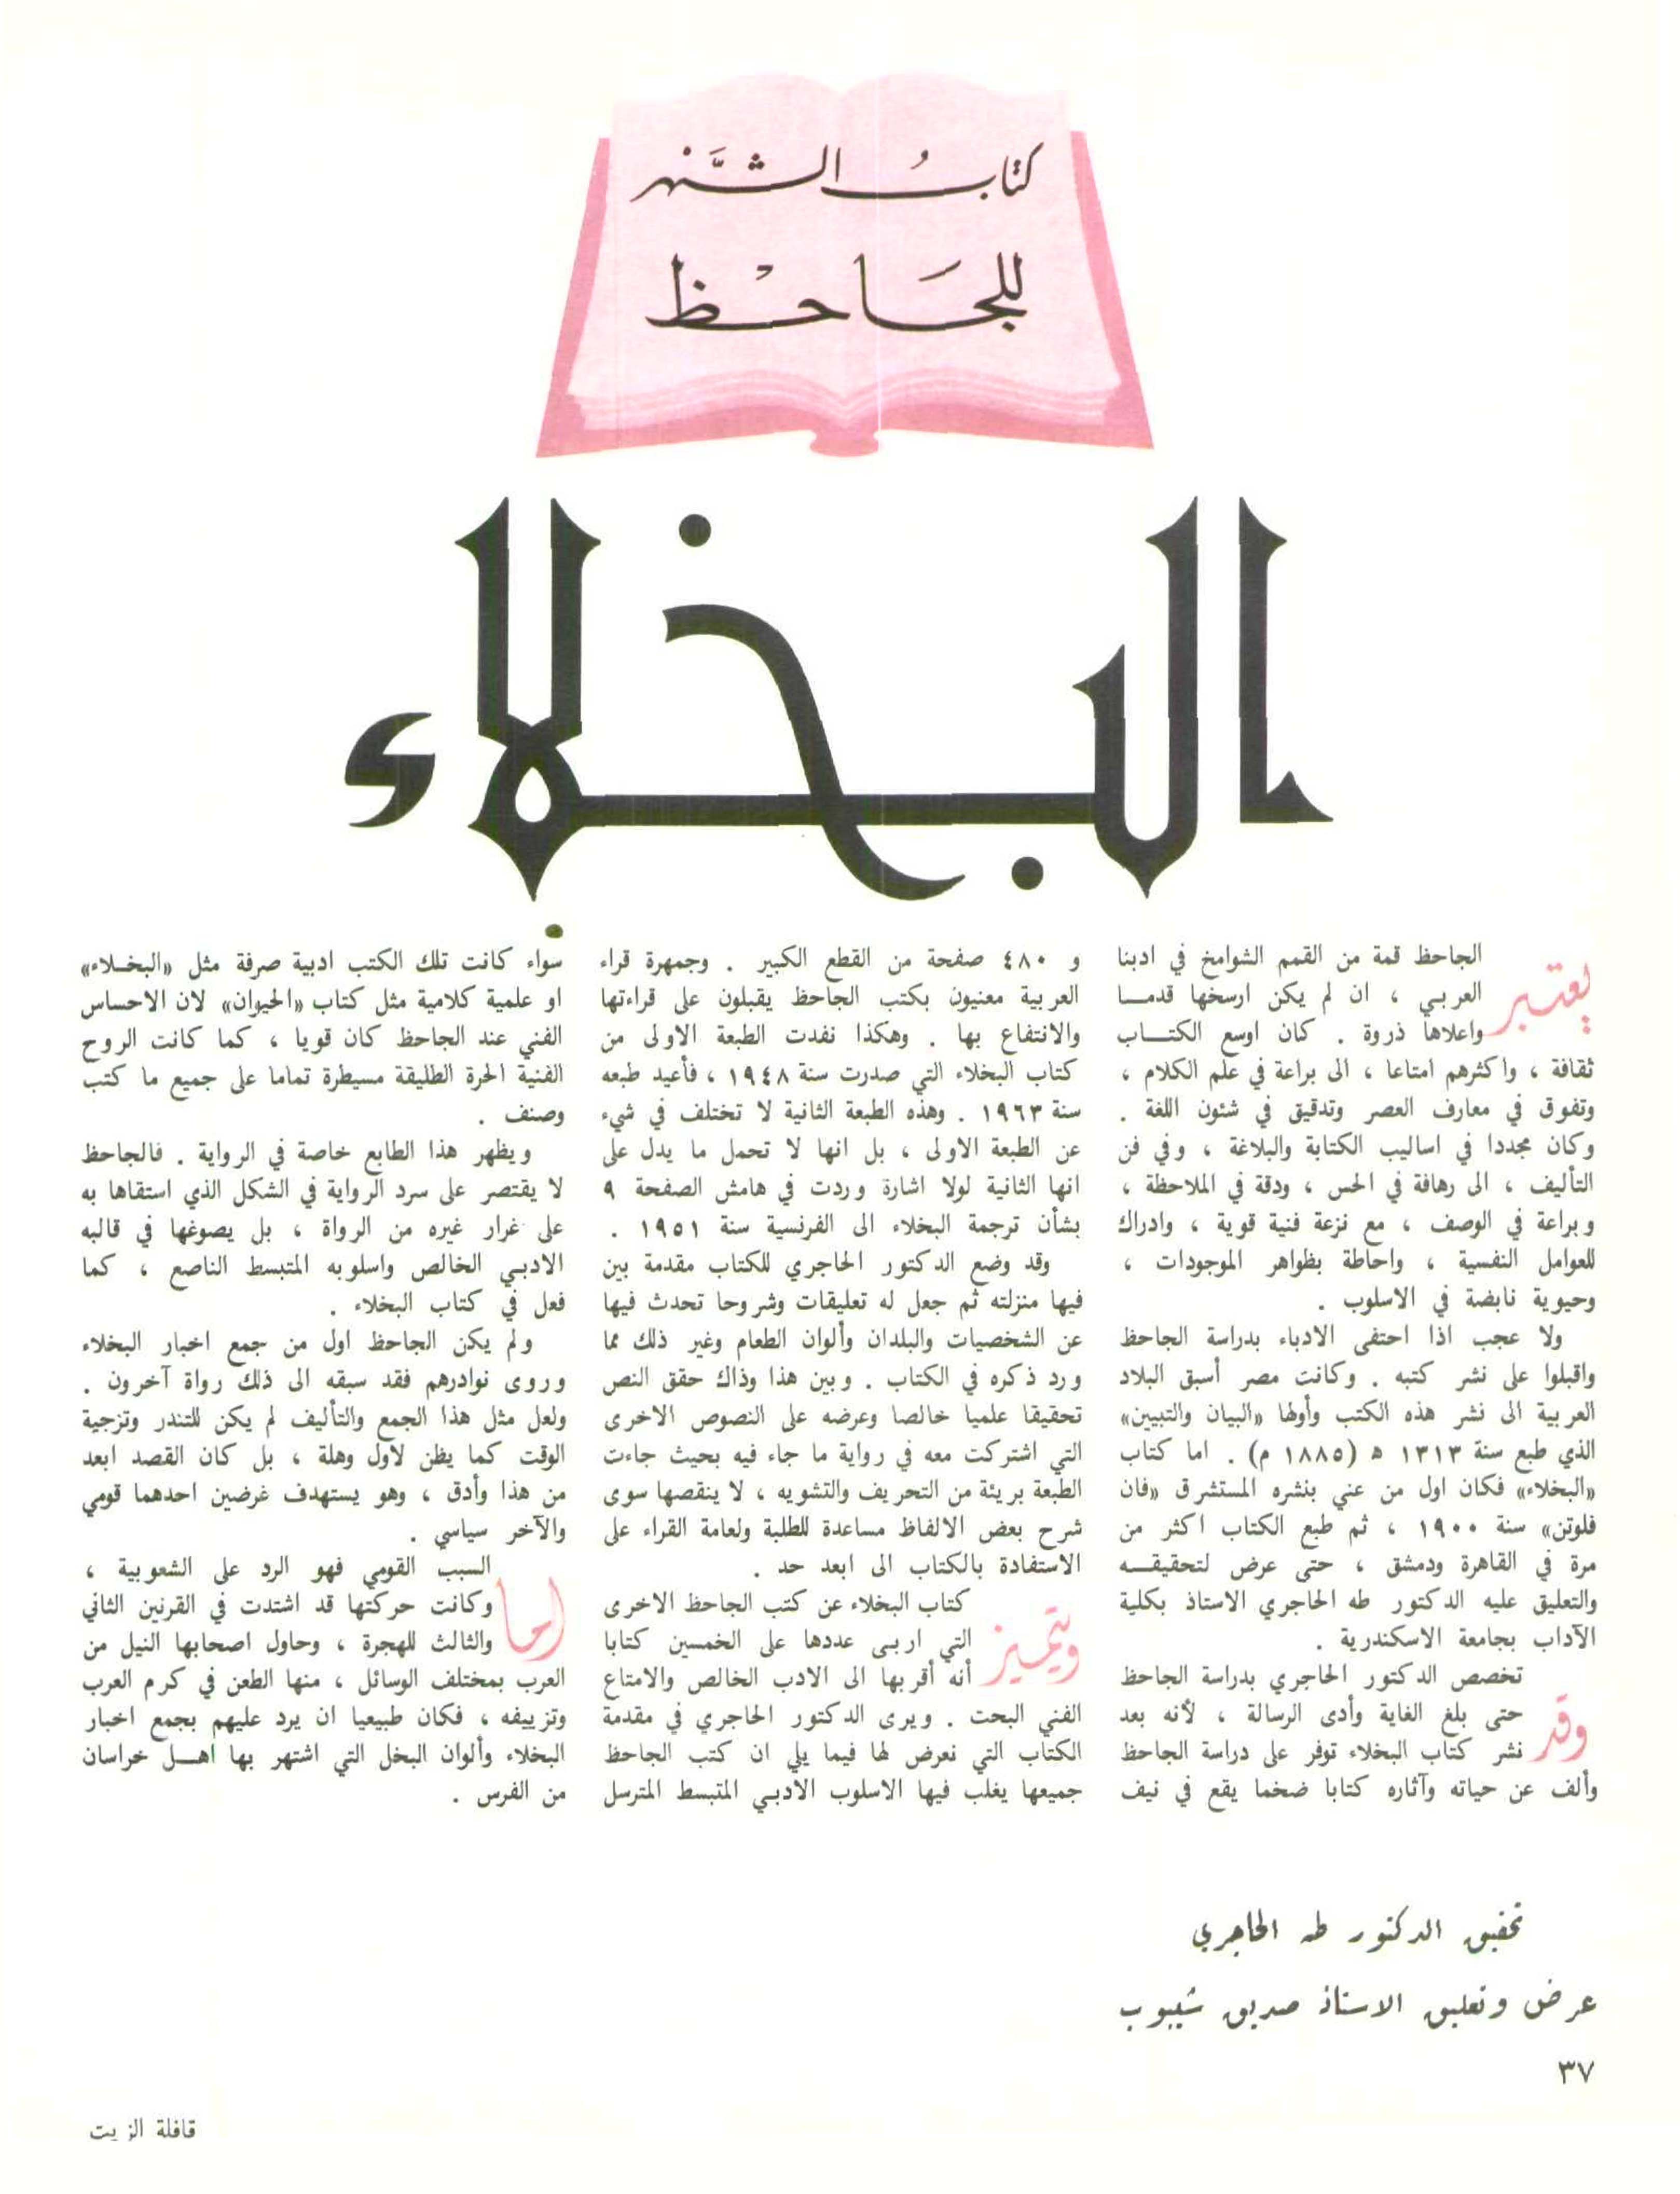 كتابُ الشَّهر
للجَاحْظ
البخلاء
يعتبر الجاحظ قمة من القمم الشوامخ في ادبنا
العربي ، ان لم يكن ارسخها قدمـا
واعلاها ذروة . كان اوسع الكتـاب
ثقافة ، واكثرهم امتاعا ، الى براعة في علم الكلام ،
وتفوق في معارف العصر وتدقيق في شئون اللغة .
وكان مجددا في اساليب الكتابة والبلاغة ، وفي فن
التأليف ، الى رهافة في الحس ، ودقة في الملاحظة ،
وبراعة في الوصف ، مع نزعة فنية قوية ، وادراك
للعوامل النفسية ، واحاطة بظواهر الموجودات ،
وحيوية نابضة في الاسلوب .
ولا عجب اذا احتفى الادباء بدراسة الجاحظ
واقبلوا على نشر كتبه . وكانت مصر أسبق البلاد
العربية الى نشر هذه الكتب وأولها «البيان والتبيين»
الذي طبع سنة ١٣١٣ ه (١٨٨٥ م) . اما كتاب
«البخلاء» فكان اول من عني بنشره المستشرق «فان
فلوتن» سنة ١٩٠٠ ، ثم طبع الكتاب اكثر من
مرة في القاهرة ودمشق ، حتى عرض لتحقيقـه
والتعليق عليه الدكتور طه الحاجري الاستاذ بكلية
الآداب بجامعة الاسكندرية .
وقد تخصص الدكتور الحاجري بدراسة الجاحظ
حتى بلغ الغاية وأدى الرسالة ، لأنه بعد
نشر كتاب البخلاء توفر على دراسة الجاحظ
وألف عن حياته وآثاره كتابا ضخما يقع في نيف
و ٤٨٠ صفحة من القطع الكبير . وجمهرة قراء
العربية معنيون بكتب الجاحظ يقبلون على قراءتها
والانتفاع بها . وهكذا نفدت الطبعة الاولى من
كتاب البخلاء التي صدرت سنة ١٩٤٨ ، فأعيد طبعه
سنة ١٩٦٣ . وهذه الطبعة الثانية لا تختلف في شيء
عن الطبعة الاولى ، بل انها لا تحمل ما يدل على
انها الثانية لولا اشارة وردت في هامش الصفحة ٩
بشأن ترجمة البخلاء الى الفرنسية سنة ١٩٥١ .
وقد وضع الدكتور الحاجري للكتاب مقدمة بين
فيها منزلته ثم جعل له تعليقات وشروحا تحدث فيها
عن الشخصيات والبلدان وألوان الطعام وغير ذلك مما
ورد ذكره في الكتاب . وبين هذا وذاك حقق النص
تحقيقا علميا خالصا وعرضه على النصوص الاخرى
التي اشتركت معه في رواية ما جاء فيه بحيث جاءت
الطبعة بريئة من التحريف والتشويه ، لا ينقصها سوى
شرح بعض الالفاظ مساعدة للطلبة ولعامة القراء على
الاستفادة بالكتاب الى ابعد حد .
ويتميز كتاب البخلاء عن كتب الجاحظ الاخرى
التي اربى عددها على الخمسين كتابا
أنه أقربها الى الادب الخالص والامتاع
الفني البحت . ويرى الدكتور الحاجري في مقدمة
الكتاب التي نعرض لها فيما يلي ان كتب الجاحظ
جميعها يغلب فيها الاسلوب الادبي المتبسط المترسل
سواء كانت تلك الكتب ادبية صرفة مثل «البخـلاء»
او علمية كلامية مثل كتاب «الحيوان» لان الاحساس
الفني عند الجاحظ كان قويا ، كما كانت الروح
الفنية الحرة الطليقة مسيطرة تماما على جميع ما كتب
وصنف .
ويظهر هذا الطابع خاصة في الرواية . فالجاحظ
لا يقتصر على سرد الرواية في الشكل الذي استقاها به
على غرار غيره من الرواة ، بل يصوغها في قالبه
الادبي الخالص واسلوبه المتبسط الناصع ، كما
فعل في كتاب البخلاء .
ولم يكن الجاحظ اول من جمع اخبار البخلاء
وروى نوادرهم فقد سبقه الى ذلك رواة آخرون .
ولعل مثل هذا الجمع والتأليف لم يكن للتندر وتزجية
الوقت كما يظن لاول وهلة ، بل كان القصد ابعد
من هذا وأدق ، وهو يستهدف غرضين احدهما قومي
والآخر سياسي .
اما السبب القومي فهو الرد على الشعوبية ،
وكانت حركتها قد اشتدت في القرنين الثاني
والثالث للهجرة ، وحاول اصحابها النيل من
العرب بمختلف الوسائل ، منها الطعن في كرم العرب
وتزييفه ، فكان طبيعيا ان يرد عليهم بجمع اخبار
البخلاء وألوان البخل التي اشتهر بها اهـل خراسان
من الفرس .
تحقيق الدكتور طه الحاجري
عرض وتعليق الاستاذ صديق شيبوب
٣٧
قافلة الزيت